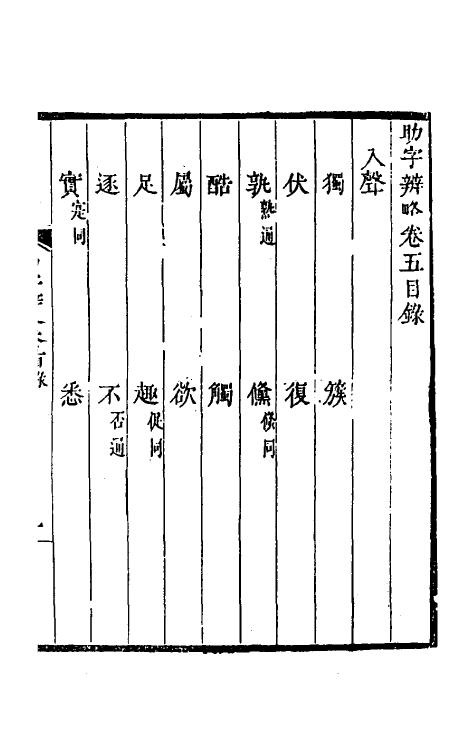 助字辨略卷五目錄
入聲
獨 簇
伏 復
孰熟通 倏倐同
酷 觸
屬 欲
足 趣促同
逐 不否通
實寔同 悉